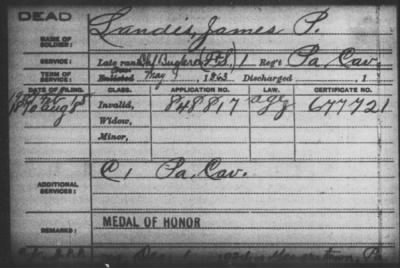 DEAD
NAME OF SOLDIER: Landis, James P.
SERVICE: Late rank, Chf Bugler, F&S, 1 Reg't Pa Cav.
TERM OF SERVICE: Enlisted May 9, 1863 Discharged , 1
DATE OF FILING. CLASS. APPLICATION NO. LAW. CERTIFICATE NO.
Invalid, 848817 677721
Widow,
Minor,
ADDITIONAL SERVICES: C, 1 Pa. Cav.
REMARKS: MEDAL OF HONOR